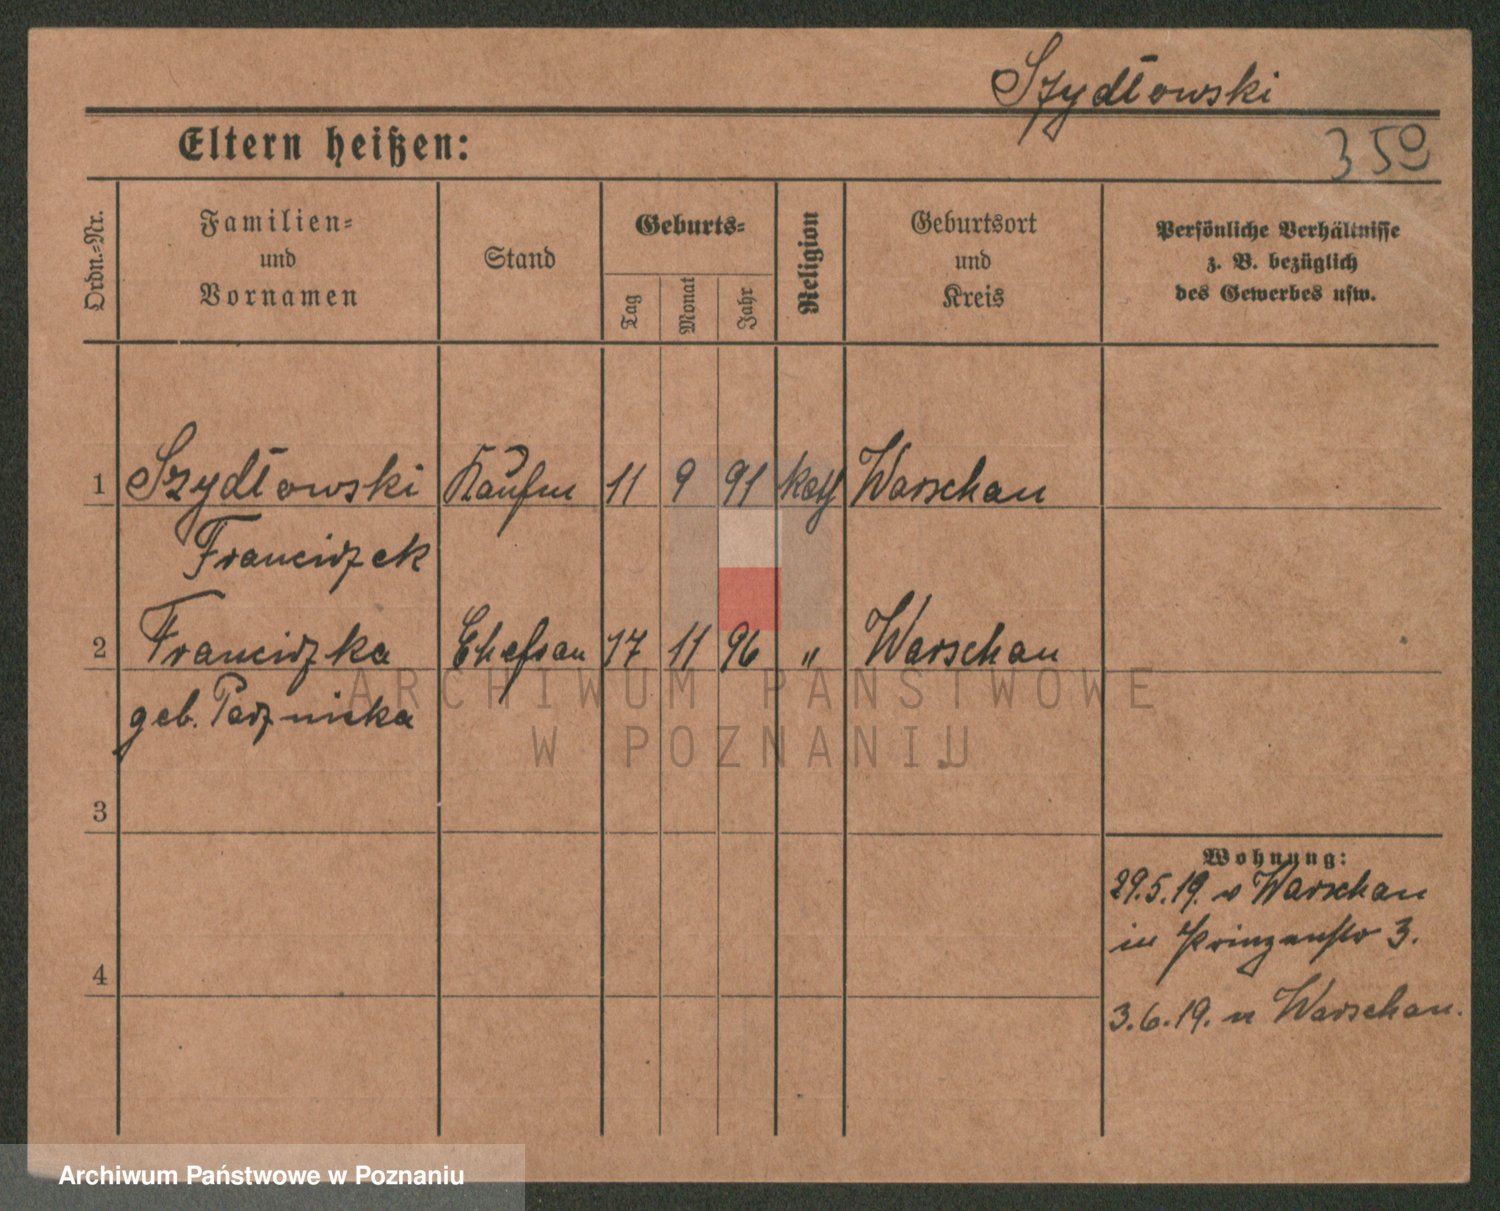 Szydłowski
Eltern heißen:
350
Ordn.-Nr.
Familien-
und
Vornamen
Stand
Geburts-
Tag
Monat
Jahr
Religion
Geburtsort
und
Kreis
Persönliche Verhältnisse
z. B. bezüglich
des Gewerbes usw.
1 Szydłowski Kaufm 11 9 91 kath Warschau
Franciszek
2 Franciszka Ehefrau 17 11 96 „ Warschau
geb.
3
4
Wohnung:
29.5.19. v Warschau
in Prinzenstr 3.
3.6.19. n Warschau.
ARCHIWUM PAŃSTWOWE
W POZNANIU
Archiwum Państwowe w Poznaniu